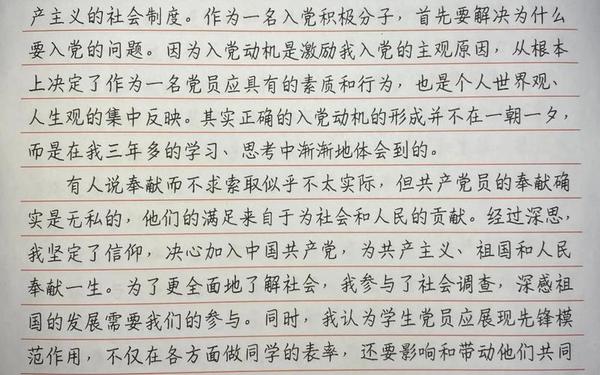 产主义的社会制度。作为一名入党积极分子，首先要解决为什么
要入党的问题。因为入党动机是激励我入党的主观原因，从根本
上决定了作为一名党员应具有的素质和行为，也是个人世界观、
人生观的集中反映。其实正确的入党动机的形成并不在一朝一夕，
而是在我三年多的学习、思考中渐渐地体会到的。
有人说奉献而不求索取似乎不太实际，但共产党员的奉献确
实是无私的，他们的满足来自于为社会和人民的贡献。经过深思，
我坚定了信仰，决心加入中国共产党，为共产主义、祖国和人民
奉献一生。为了更全面地了解社会，我参与了社会调查，深感祖
国的发展需要我们的参与。同时，我认为学生党员应展现先锋模
范作用，不仅在各方面做同学的表率，还要影响和带动他们共同